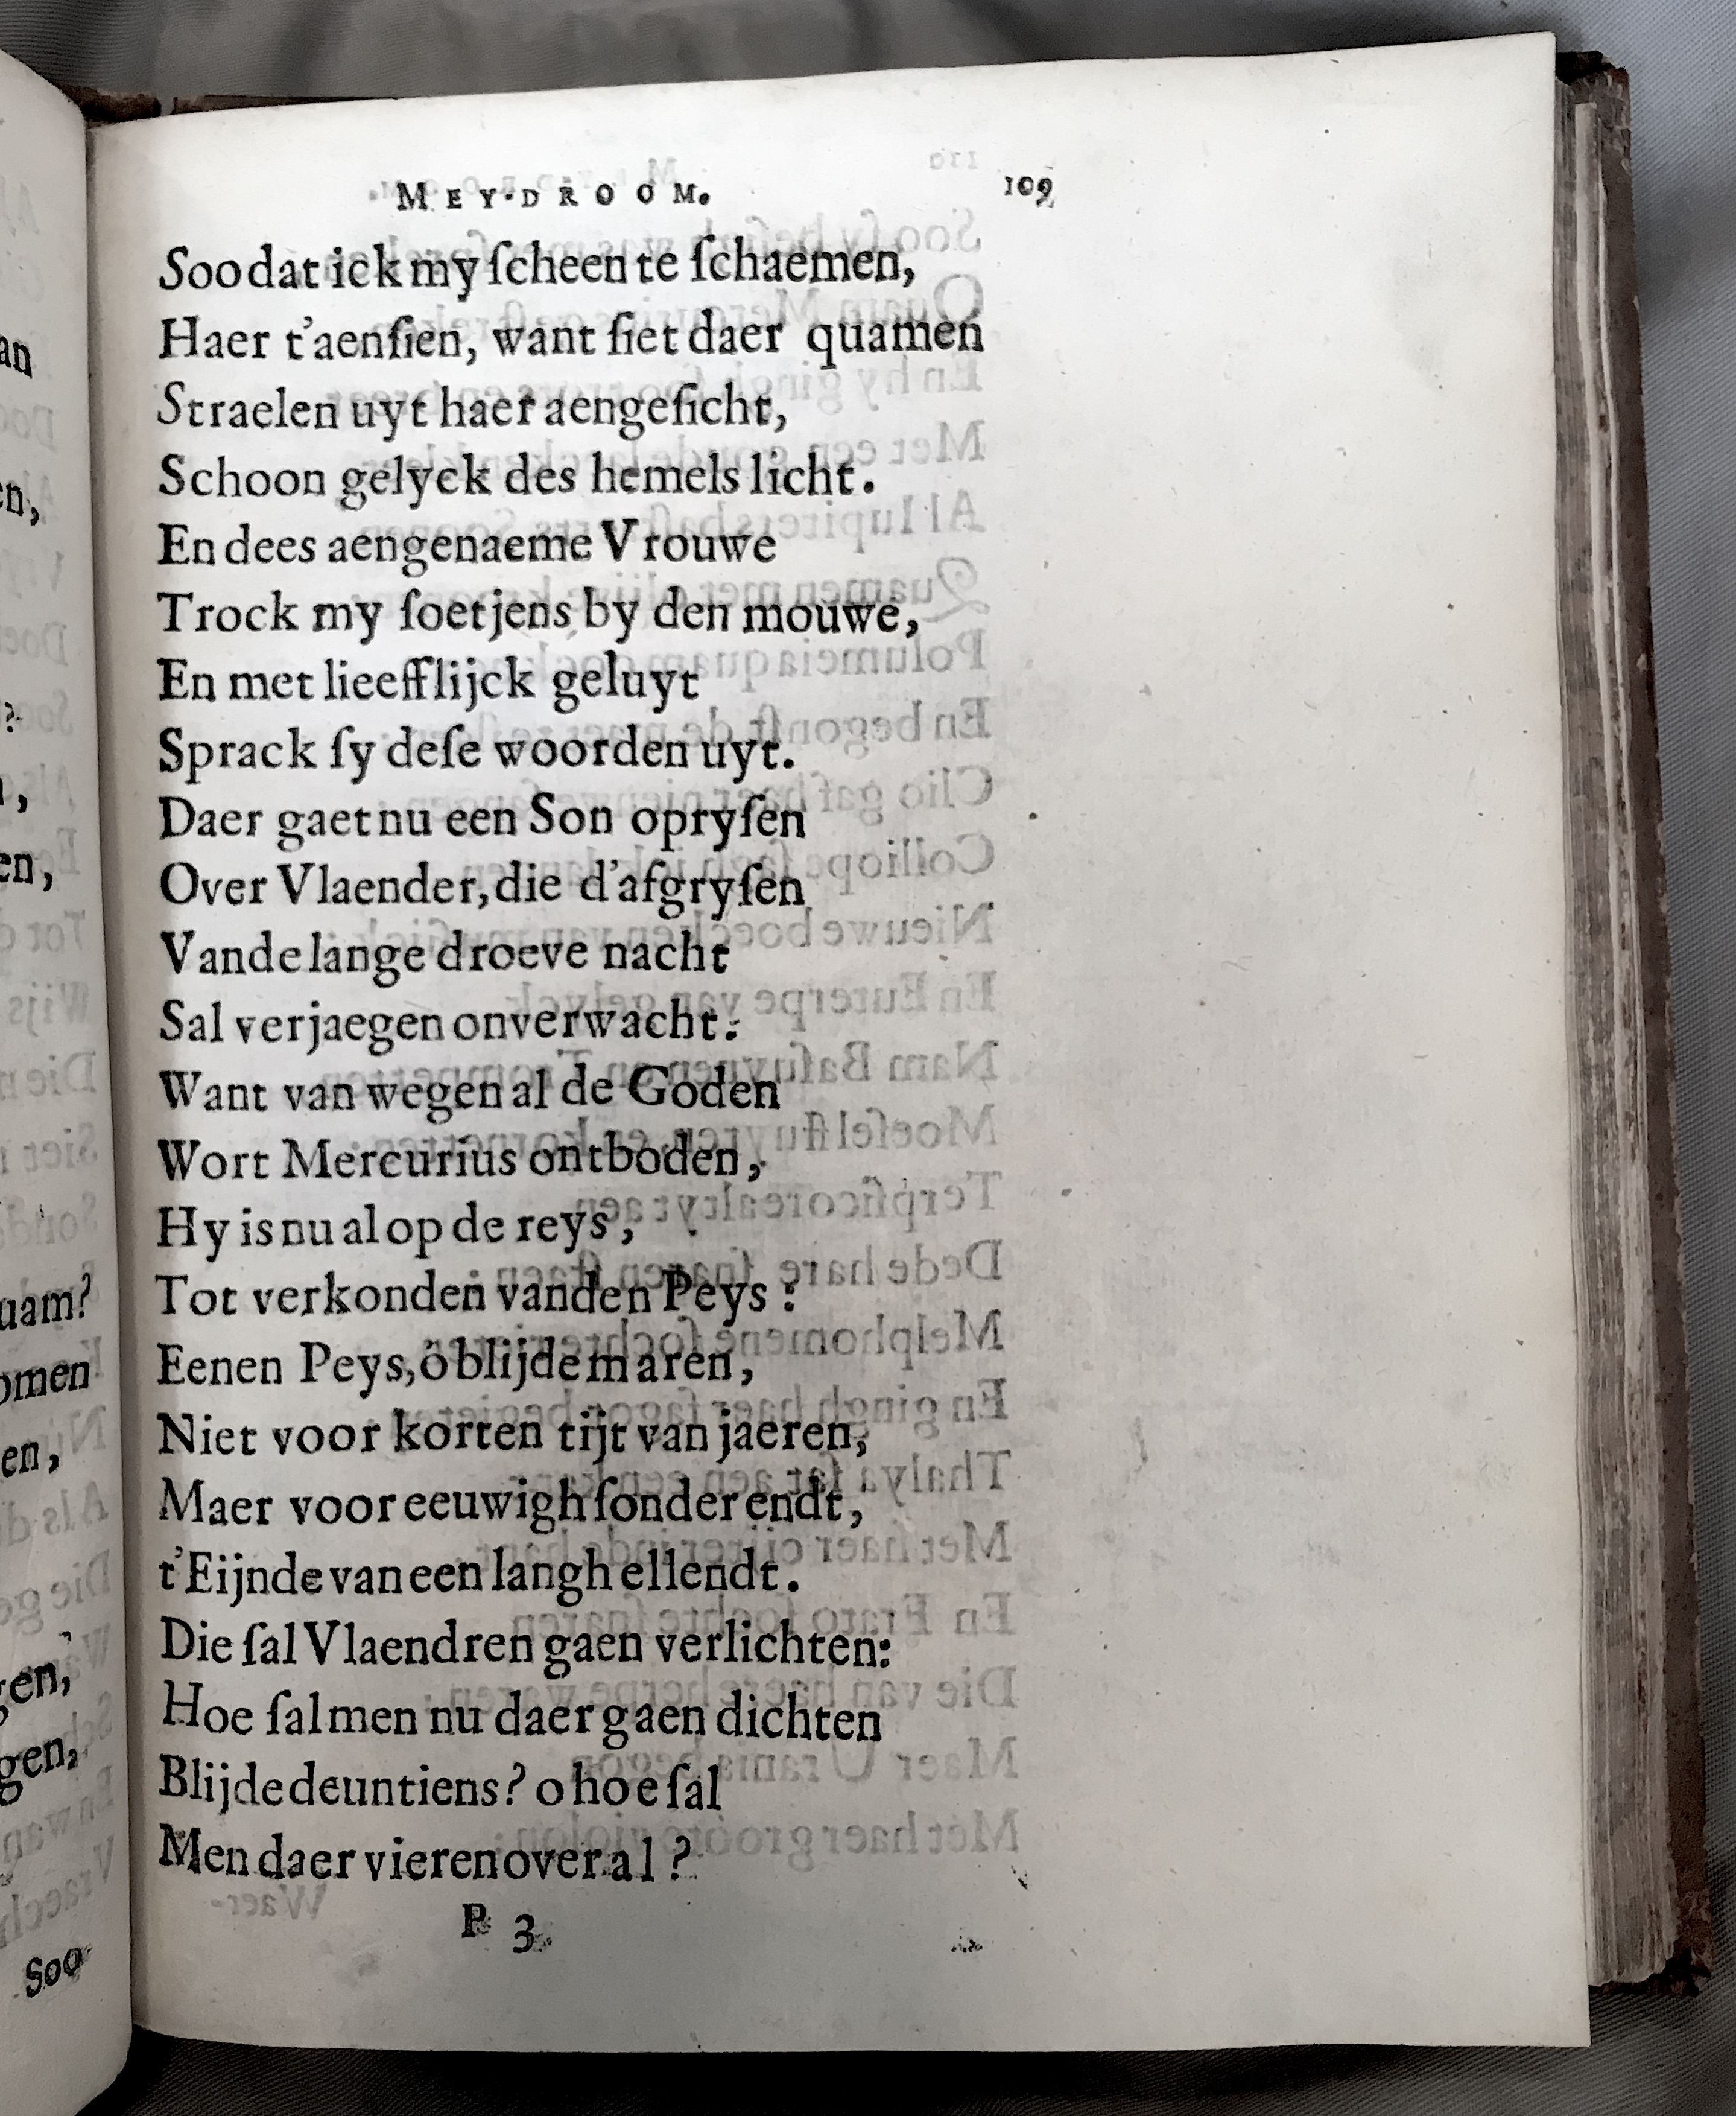 MEY-DROOM. 109
Soo dat ick my ſcheen te ſchaemen,
Haer t'aenſien, want ſiet daer quamen
Straelen uyt haer aengeſicht,
Schoon gelyck des hemels licht.
En dees aengenaeme Vrouwe
Trock my ſoetjens by den mouwe,
En met lieefflijck geluyt
Sprack ſy deſe woorden uyt.
Daer gaet nu een Son opryſen
Over Vlaender, die d'afgryſen
Vande lange droeve nacht
Sal verjaegen onverwacht.
Want van wegen al de Goden
Wort Mercurius ontboden,
Hy is nu al op de reys,
Tot verkonden vanden Peys:
Eenen Peys, ö blijde maren,
Niet voor korten tijt van jaeren,
Maer voor eeuwigh ſonder endt,
t'Eijnde van een langh ellendt.
Die ſal Vlaendren gaen verlichten:
Hoe ſalmen nu daer gaen dichten
Blijde deuntiens? o hoe ſal
Men daer vieren over al?
P 3
an
en,
?
,
en,
uam?
omen
en,
gen,
gen,
Soo